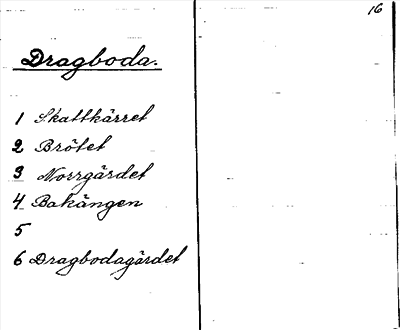 16
Dragboda.
1 Skattkärret
2 Brötet
3 Norrgärdet
4 Bakängen
5
6 Dragbodagärdet